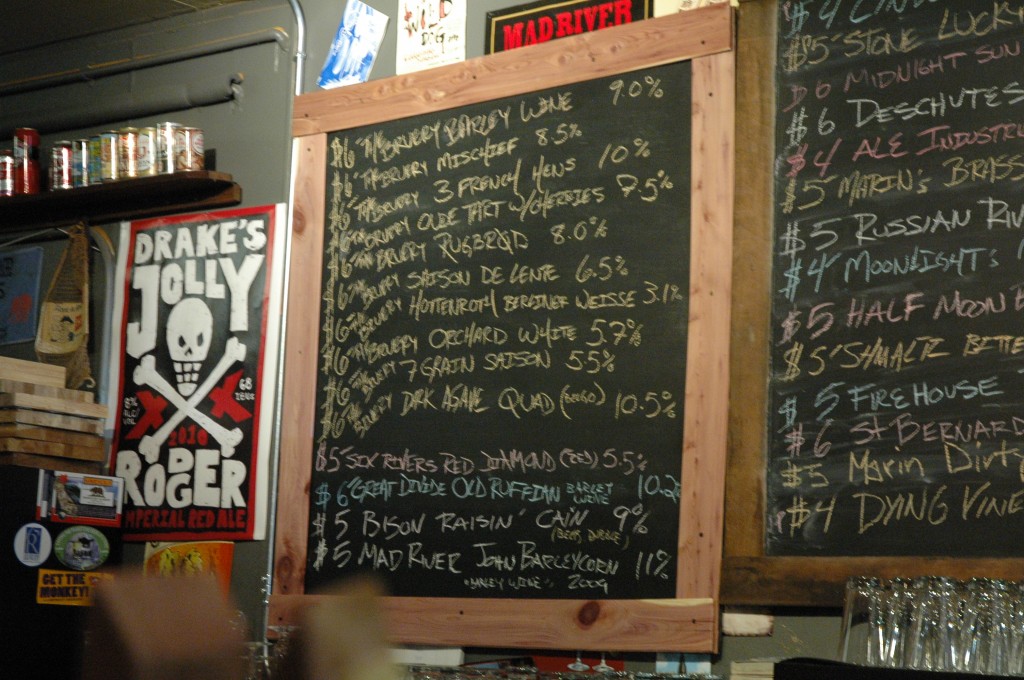 WILD
MAD RIVER
$6 THE BRUERY BARLEY WINE 9.0%
$6 THE BRUERY MISCHIEF 8.5%
$6 THE BRUERY 3 FRENCH HENS 10%
$6 THE BRUERY OLDE TART W/CHERRIES 7.5%
$6 THE BRUERY RUGBROD 8.0%
$6 THE BRUERY SAISON DE LENTE 6.5%
$6 THE BRUERY HOTTENROTH BERLINER WEISSE 3.1%
$6 THE BRUERY ORCHARD WHITE 5.7%
$6 THE BRUERY 7 GRAIN SAISON 5.5%
$6 THE BRUERY DARK AGAVE QUAD 10.5%
$5 SIX RIVERS RED DIAMOND (RED) 5.5%
$6 GREAT DIVIDE OLD RUFFIAN BARLEY WINE 10.2%
$5 BISON RAISIN' CAIN 9%
$5 MAD RIVER JOHN BARLEYCORN 11%
BARLEY WINE 2009
$5 STONE LUCKY
6 MIDNIGHT SUN
$6 DESCHUTES
$4 ALE INDUSTRI
$5 MARIN'S BRASS
$5 RUSSIAN RIV
$4 MOONLIGHTS
$5 HALF MOON B
$5 SHMALTZ BITTE
$5 FIREHOUSE
$6 ST BERNARD
$5 Marin Dirty
$4 DYING VINE
DRAKE'S
JOLLY
8%
ALC/
VOL
68
IBUS
2010
RODGER
IMPERIAL RED ALE
GET THE
MONKEY!